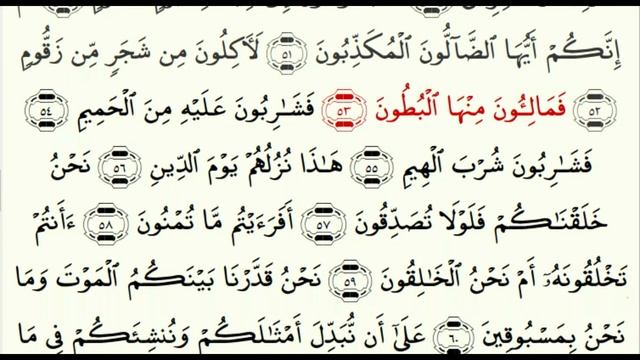 إِنَّكُمْ أَيُّهَا الضَّآلُّونَ الْمُكَذِّبُونَ ٥١ لَأَكِلُونَ مِن شَجَرٍ مِّن زَقُّومٍ
٥٢ فَمَالِـُٔونَ مِنْهَا الْبُطُونَ ٥٣ فَشَٰرِبُونَ عَلَيْهِ مِنَ الْحَمِيمِ ٥٤
فَشَٰرِبُونَ شُرْبَ الْهِيمِ ٥٥ هَٰذَا نُزُلُهُمْ يَوْمَ الدِّينِ ٥٦ نَحْنُ
خَلَقْنَٰكُمْ فَلَوْلَا تُصَدِّقُونَ ٥٧ أَفَرَءَيْتُم مَّا تُمْنُونَ ٥٨ ءَأَنتُمْ
تَخْلُقُونَهُۥٓ أَمْ نَحْنُ الْخَٰلِقُونَ ٥٩ نَحْنُ قَدَّرْنَا بَيْنَكُمُ الْمَوْتَ وَمَا
نَحْنُ بِمَسْبُوقِينَ ٦٠ عَلَىٰٓ أَن نُّبَدِّلَ أَمْثَٰلَكُمْ وَنُنشِئَكُمْ فِي مَا